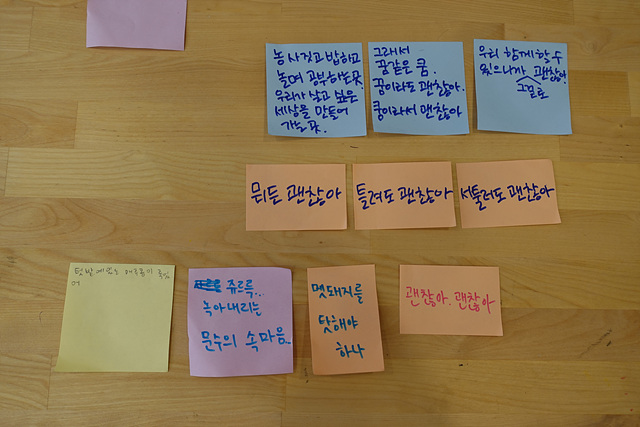 농사짓고 밥하고
놀며 공부하는 곳.
우리가 살고 싶은
세상을 만들어
가는 곳.
그래서
꿈같은 쿰.
꿈이라도 괜찮아.
쿰이라서 괜찮아
우리 함께 할 수
있으니까 괜찮아.
그걸로
뭐든 괜찮아
틀려도 괜찮아
서툴러도 괜찮아
텃밭에는
쥬르륵...
녹아내리는
문수의 속마음..
멧돼지를
탓해야
하나
괜찮아. 괜찮아